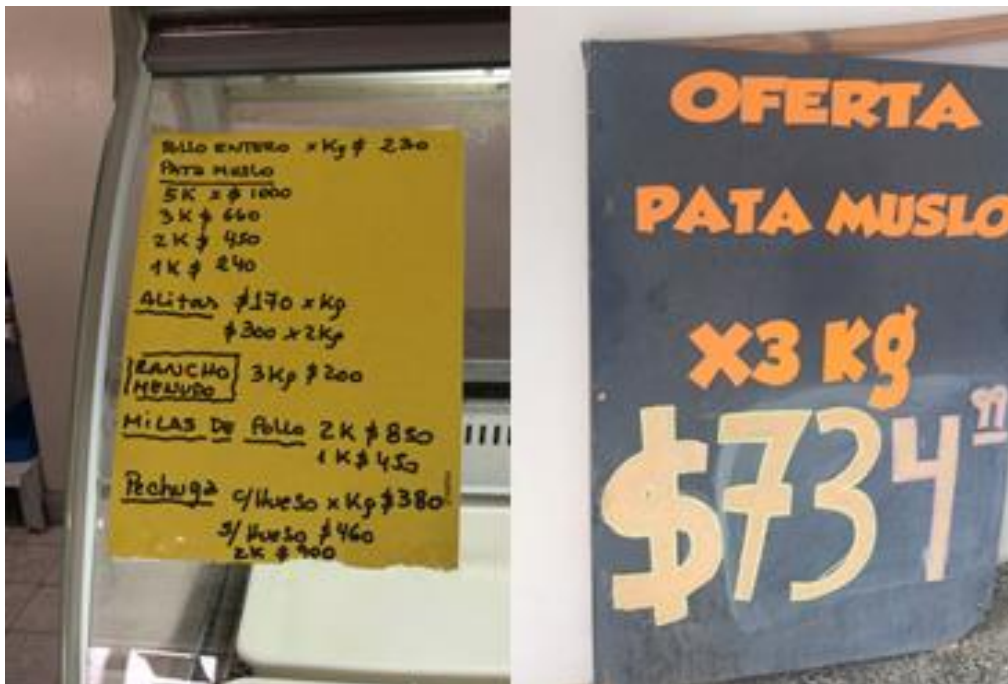 POLLO ENTERO x Kg $ 230
PATA MUSLO
5K x $ 1000
3K $ 660
2K $ 450
1K $ 240
Alitas $170 x Kg
$300 x 2Kg
RANCHO 3Kg $200
MENUDO
MILAS DE Pollo 2K $850
1K $450
Pechuga c/Hueso x Kg $380
s/ Hueso $460
2K $900
OFERTA
PATA MUSLO
X3 Kg
$734